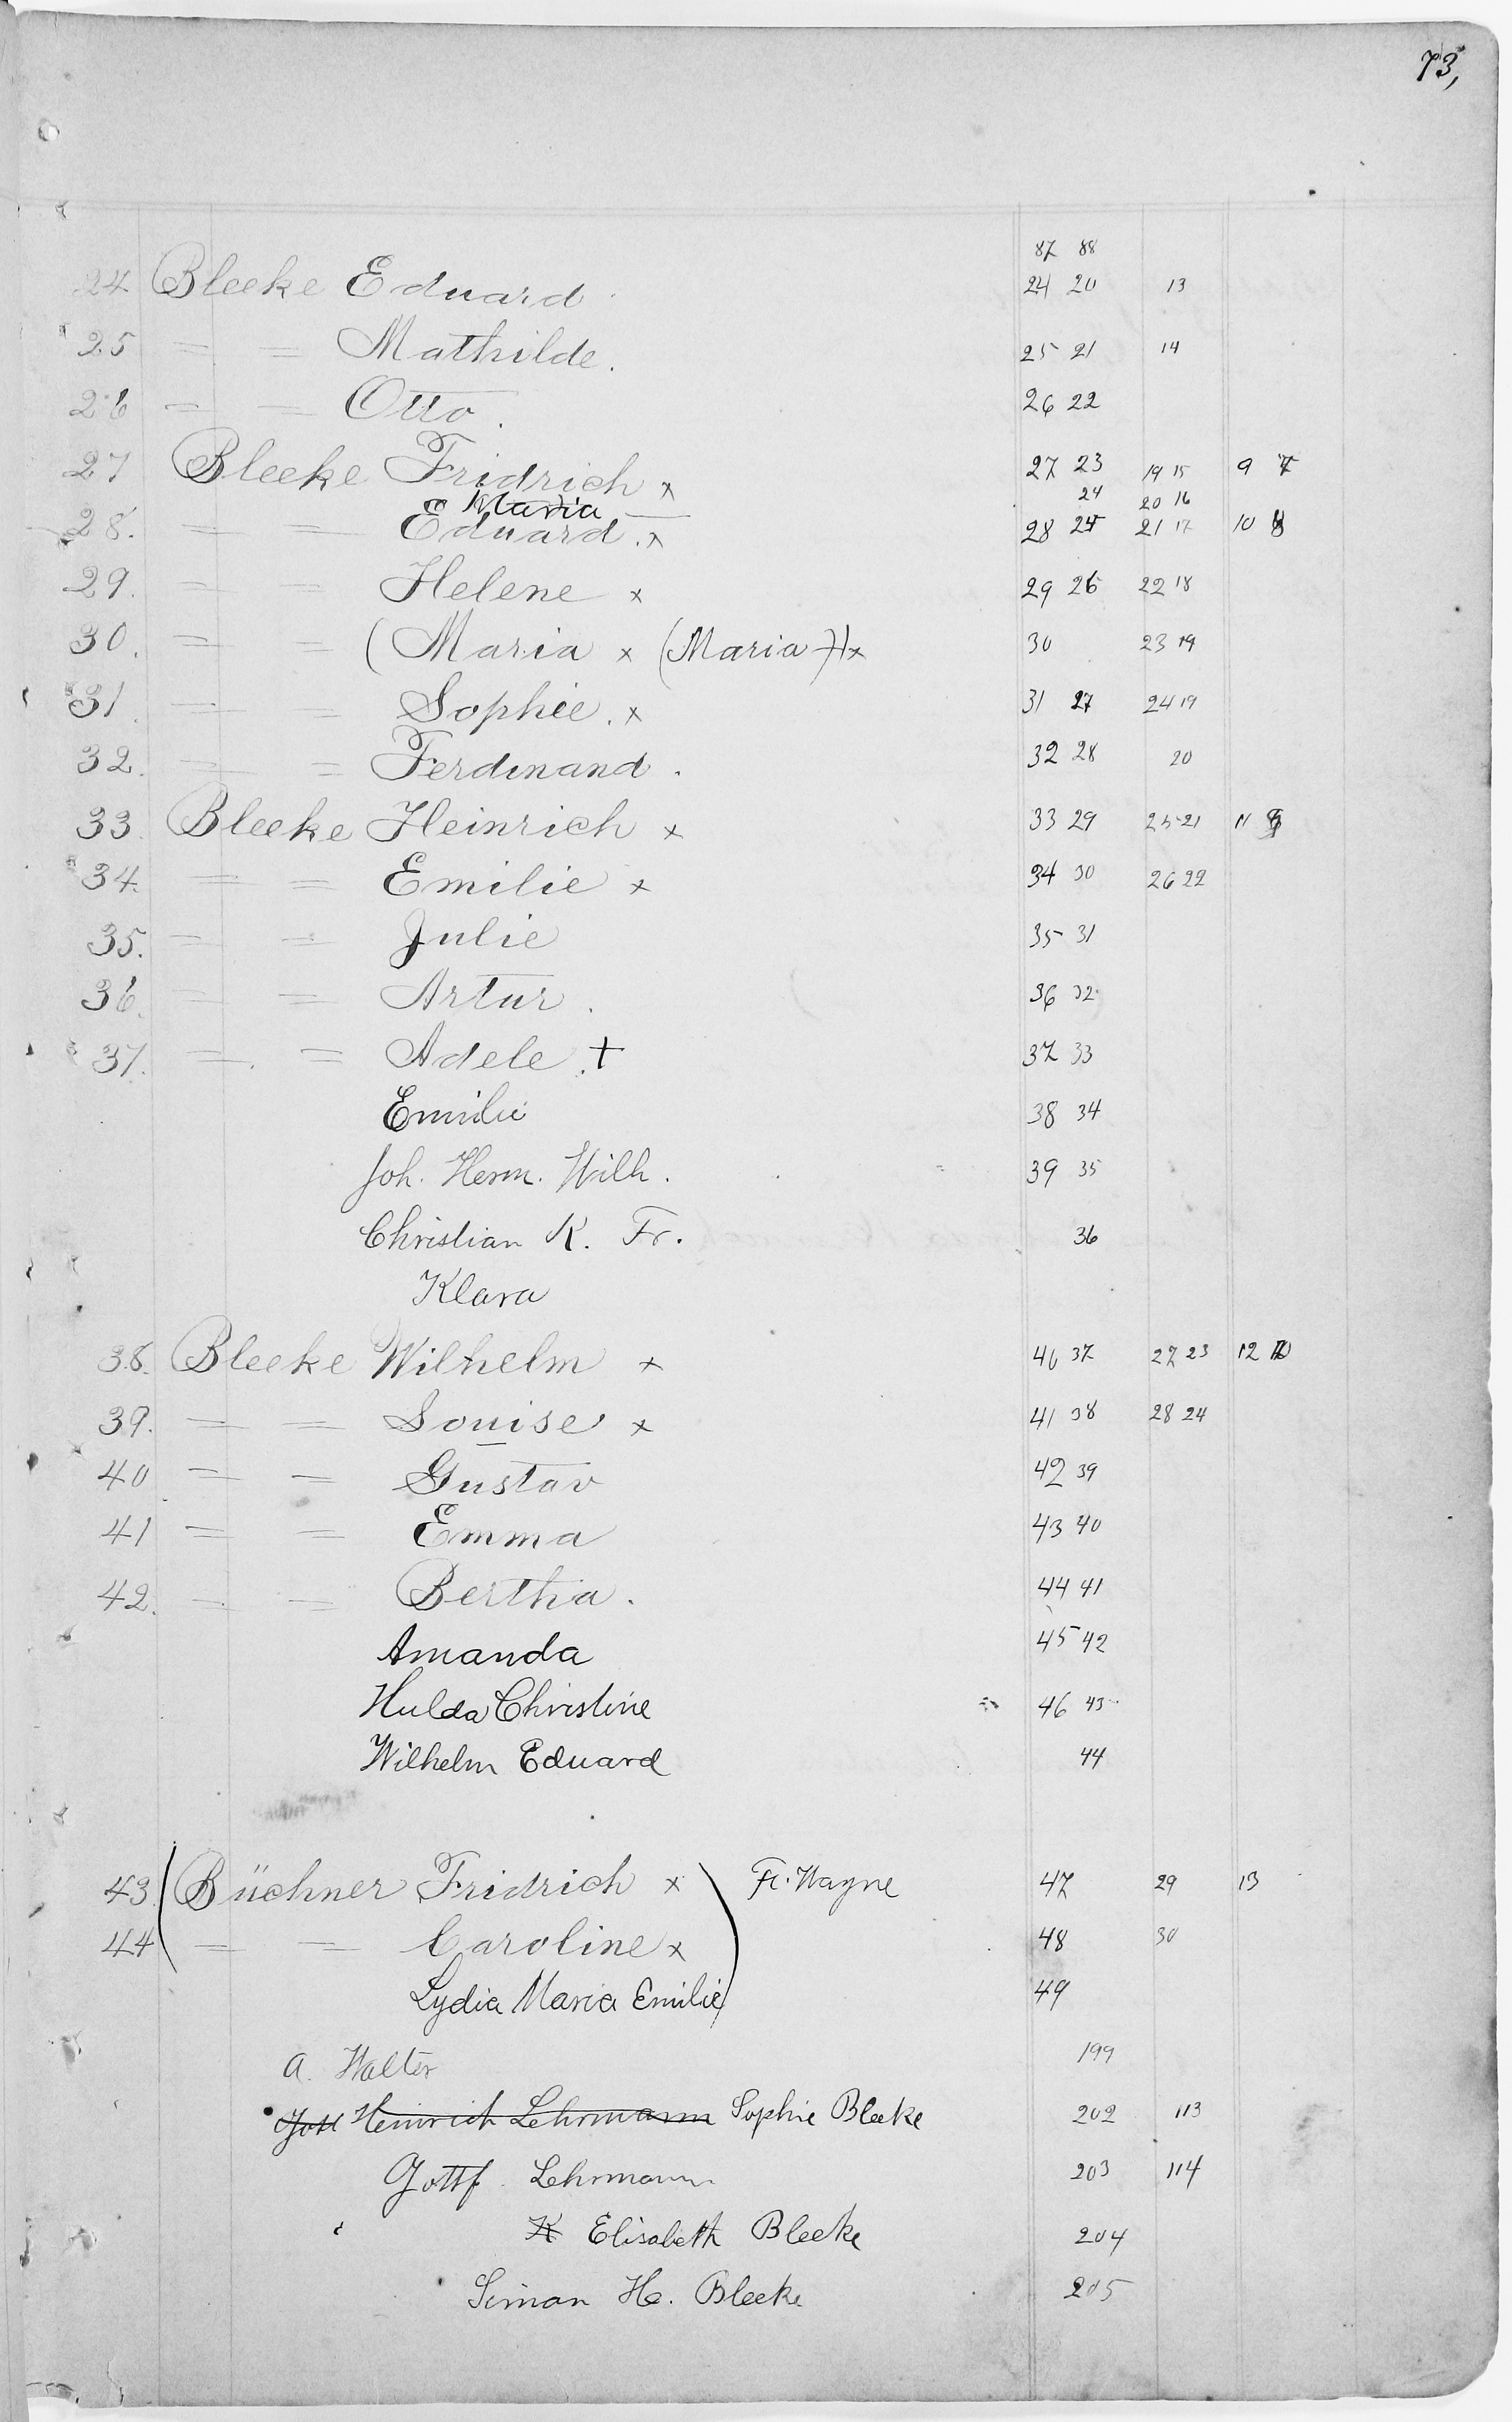 73,
87 88
24 Bleeke Eduard 24 20 13
25 = = Mathilde. 25 21 14
26 = = Otto. 26 22
27 Bleeke Fridrich x 27 23 19 15 9 7
Maria 24 20 16
28. = = Eduard. x 28 25 21 17 10 8
29. = = Helene x 29 26 22 18
30. = = (Maria x (Maria +)x 30 23 19
31. = = Sophie. x 31 27 24 19
32. = = Ferdinand. 32 28 20
33 Bleeke Heinrich x 33 29 25 21 11 9
34. = = Emilie x 34 30 26 22
35. = = Julie 35 31
36. = = Artur. 36 32
37. = = Adele. + 37 33
Emilie 38 34
Joh. Herm. Wilh. 39 35
Christian K. Fr. 36
Klara
38. Bleeke Wilhelm x 40 37 27 23 12 10
39. = = Louise x 41 38 28 24
40 = = Gustav 42 39
41 = = Emma 43 40
42. = = Bertha. 44 41
Amanda 45 42
Hulda Christine 46 43
Wilhelm Eduard 44
43 (Büchner Fridrich x) Ft. Wayne 47 29 13
44 = = Caroline x 48 30
Lydia Maria Emilie) 49
a. Walter 199
Heinrich Lehrmann Sophie Bleeke 202 113
Gottf. Lehrmann 203 114
K Elisabeth Bleeke 204
Simon He. Bleeke 205